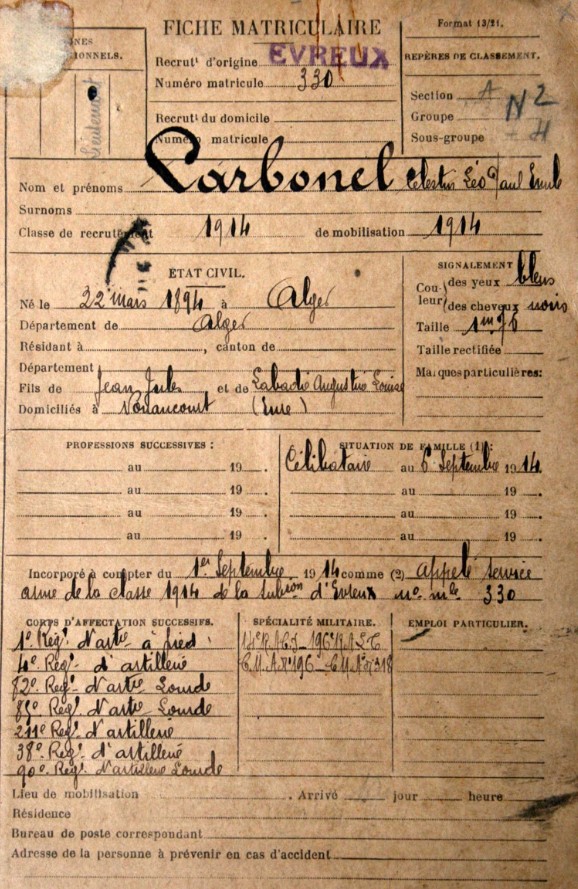 FICHE MATRICULAIRE
Format 13/21.
Recrut^t d'origine EVREUX
Numéro matricule 330
Recrut^t du domicile
Numéro matricule
REPÈRES DE CLASSEMENT.
Section A
Groupe N 2
Sous-groupe 4
Nom et prénoms Carbonel Célestin Léo Paul Emile
Surnoms
Classe de recrutement 1914 de mobilisation 1914
ÉTAT CIVIL.
Né le 22 mars 1894 à Alger
Département de Alger
Résidant à , canton de
Département
Fils de Jean Jules et de Labadie Augustine Louise
Domiciliés à Nonancourt (Eure)
SIGNALEMENT
Couleur des yeux bleus
des cheveux noirs
Taille 1m76
Taille rectifiée
Marques particulières:
PROFESSIONS SUCCESSIVES :
au 19 .
au 19 .
au 19 .
au 19 .
SITUATION DE FAMILLE (1):
Célibataire au 6 Septembre 1914
au 19 .
au 19 .
au 19 .
Incorporé à compter du 1er Septembre 1914 comme (2) appelé service
armé de la classe 1914 de la Subion d'Evreux no mle 330
CORPS D'AFFECTATION SUCCESSIFS.
1er Régt d'artie à pied
4e Régt d'artillerie
82e Régt d'artie Lourde
Régt d'artie Lourde
211e Régt d'artillerie
38e Régt d'artillerie
90e Régt d'artillerie Lourde
SPÉCIALITÉ MILITAIRE.
EMPLOI PARTICULIER.
Lieu de mobilisation . Arrivé jour heure
Résidence
Bureau de poste correspondant
Adresse de la personne à prévenir en cas d'accident